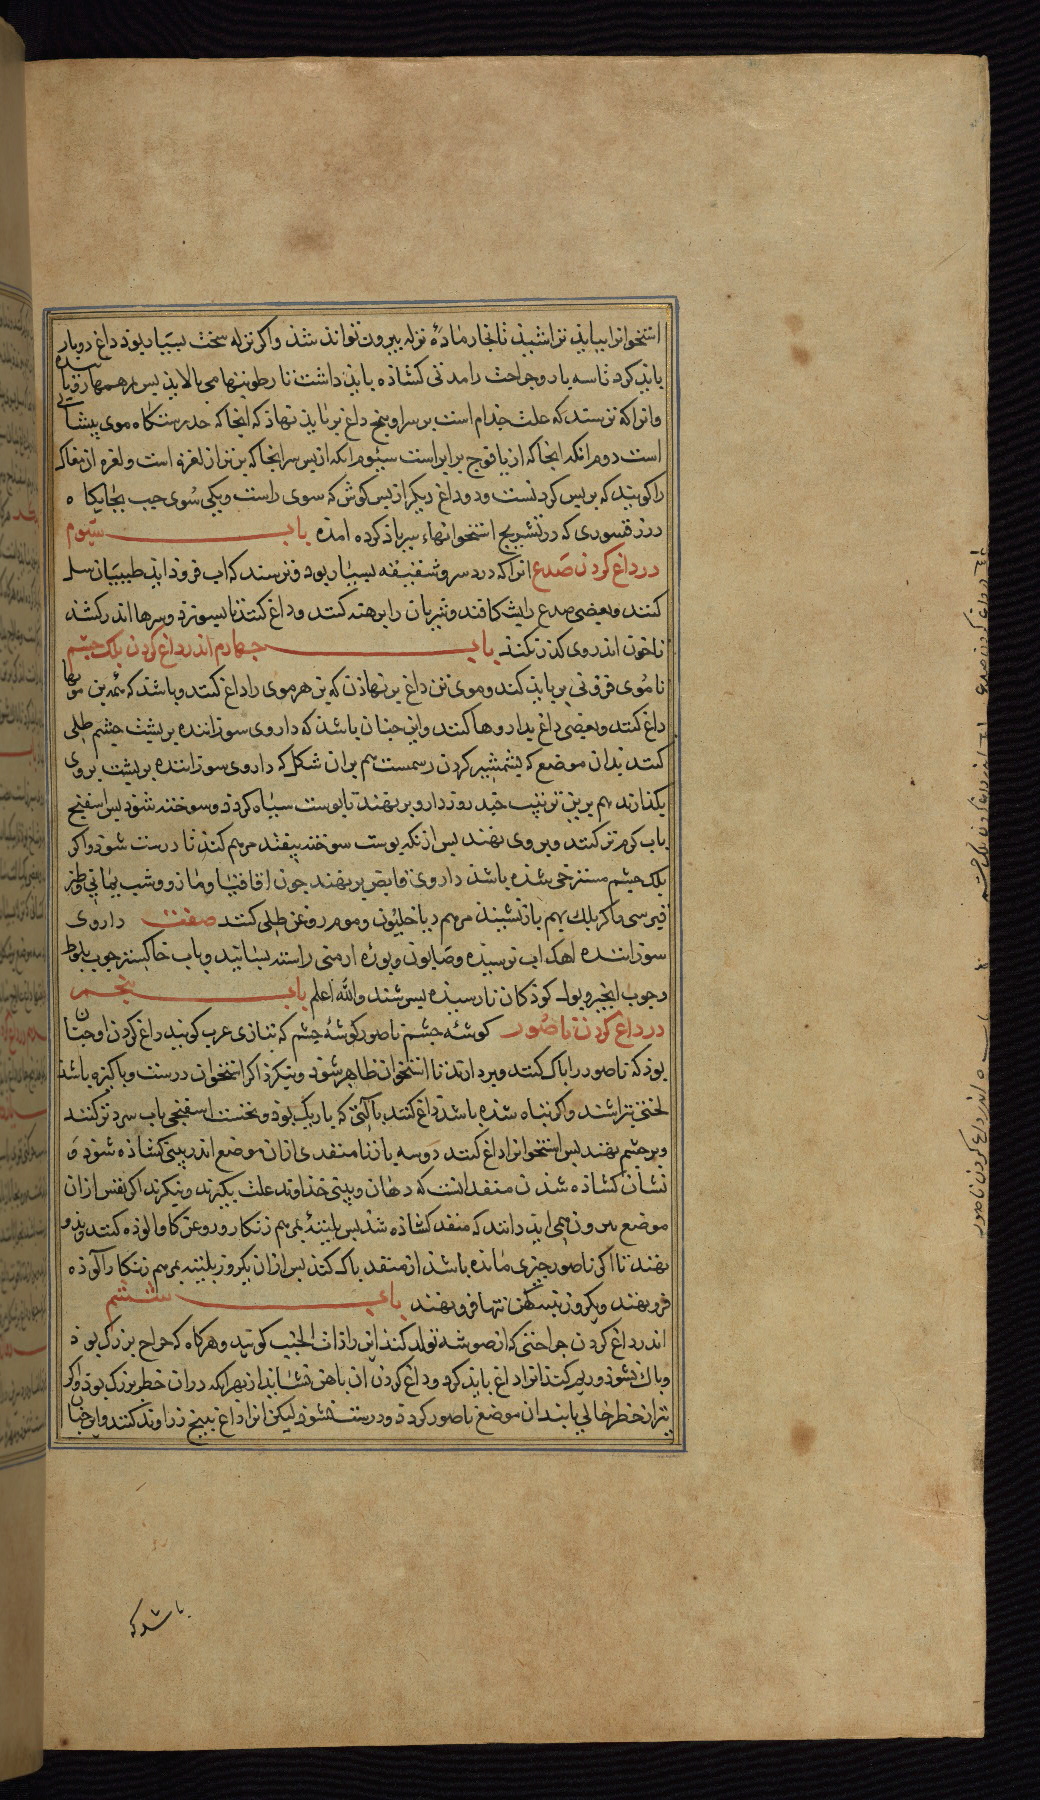 استخوانرا بباید تراشیذ تا بخار مادۀ نزله بیرون تواند شذ واکر نزله سخت بسیار بوذ داغ دوبار
باید کرد تا سه بار وجراحت را مدتی کشاذه باید داشت تا رطوبتها می بالاید پس مرهمها
وانرا که ترسند که علت جذام است بر سر او پنج داغ بر باید نهاذ که انجا که حد رستنکاه موی پیشانی
است دوم انکه انجا که از یافوخ برابر است سیوم انکه از پس سر انجا که برتر از لغره است ولغره ان مغاک
را کویند که بر پس کردنست ودو داغ دیکر از پس کوش که سوی راست ویکی سوی چپ بجایکاه
درز قشوری که در تشریح استخوانهاء سر یاذ کرده امذه باب سیوم
در داغ کردن صدع انرا که درد سر وشقیقه بسیار بود وترسند که اب فروذ اید طبیبان سل
کنند وبعضی صدع را بشکافند وشریان را برهنه کنند وداغ کنند تا بسوزد وسرها اندر کشذ
تا خون اندر وی کذر نکند باب چهارم اندر داغ کردن پلک چشم
تا موی فزونی بر باید کند وموی بن داغ بر نهاذن که بن هر موی را داغ کنند وباشذ که همه بن مویها
داغ کنند وبعضی داغ بداروها کنند واین چنان باشذ که داروی سوزاننده بر پشت چشم طلی
کنند بذان موضع که بتشمیر کردن رسمست هم بران شکل که داروی سوزاننده بر پشت بروی
بکذارند هم برین ترتیب چند روز دارو بر نهند تا پوست سیاه کردد وسوخته شوذ پس اسفنج
باب کرم تر کنند وبر وی نهند پس ازنکه پوست سوخته بیفتد مرهم کنند تا درست شوذ واکر
پلک چشم مسترخی شذه باشذ داروی قابض بر نهند چون اقاقیا ومازو وشب یمانی
قیرسی واکر پلک بهم باز نشیند مرهم دیاخلیون وموم روغن طلی کنند صفت داروی
سوزاننده اهک اب نرسیذه وصابون وبوره ارمنی راستا راست بستانند وباب خاکستر چوب بلوط
وچوب انجیر وبول کوذکان نارسیذه بسرشند والله اعلم باب پنجم
در داغ کردن ناصور کوشه چشم ناصور کوشۀ چشم که بتازی غرب کویند داغ کردن او چنان
بوذ که ناصور را پاک کنند وبر دارند تا استخوان ظاهر شود وبنکرند اکر استخوان درست وپاکیزه باشذ
لختی بتراشند واکر تباه شذه باشذ داغ کنند بآلتی که باریک بوذ ونخست اسفنجی باب سرد تر کنند
وبر چشم نهند پس استخوانرا داغ کنند دو سه بار تا منفذی ازان موضع اندر بینی کشاذه شود و
نشان کشاذه شذن منفذ انست که دهان وبینی خذاوند علت بکیرند وبنکرند اکر نفس ازان
موضع بیرون همی اید دانند که منفذ کشاذه شذ پس پلیتۀ بمرهم زنکار وروغن کاو الوذه کنند
نهند تا اکر ناصور چیزی مانده باشذ از منفذ پاک کند پس ازان یکروز پلیته بمرهم زنکار آلوذه
فرو نهند ویکروز بمسکن تنها فرو نهند باب ششم
اندر داغ کردن جراحتی که از صوشه تولد کند این را ذات الجنب کویند وهرکاه که جراح بزرک بوذ
وپاک نشوذ وریم کند انرا داغ باید کرد وداغ کردن ان باهن نشاید از بهر انکه دران خطر بزرک بوذ واکر
ازان خطر خالی یابند ان موضع ناصور کردد ودرست نشوذ لیکن انرا داغ ببیخ زراوند کنند واین چنان
باشد که
باب در داغ کردن صدع باب اندر داغ کردن پلک چشم
باب ۵ اندر داغ کردن ناصور